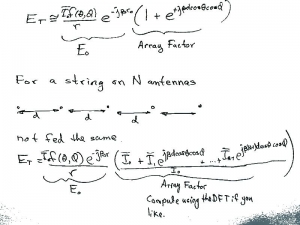 E_T ≅ I f(θ,Q)/r e^-jβr (1 + e^jβdcosθcosQ)
E_o Array Factor
For a string on N antennas
d d d
not fed the same.
E_T = I_o f(θ,Q) e^-jβr / r (I_o + I_1 e^jβdcosθcosQ + ... + I_N-1 e^jβ(N-1)dcosθcosQ) / I_o
E_o Array Factor
Compute using the DFT if you
like.